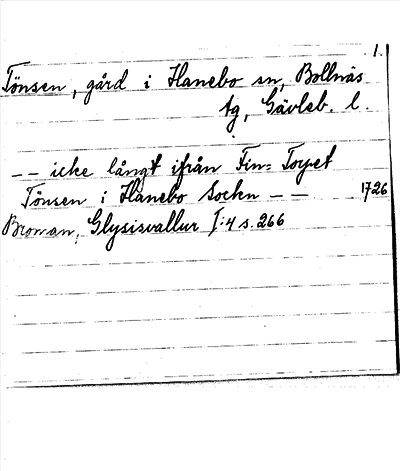 1.
Tönsen, gård i Hanebo sn, Bollnäs
tg, Gävleb. l.
-- icke långt ifrån Fin-Torpet
Tönsen i Hanebo Sockn -- 1726
Broman, Glysisvallur I:4 s. 266